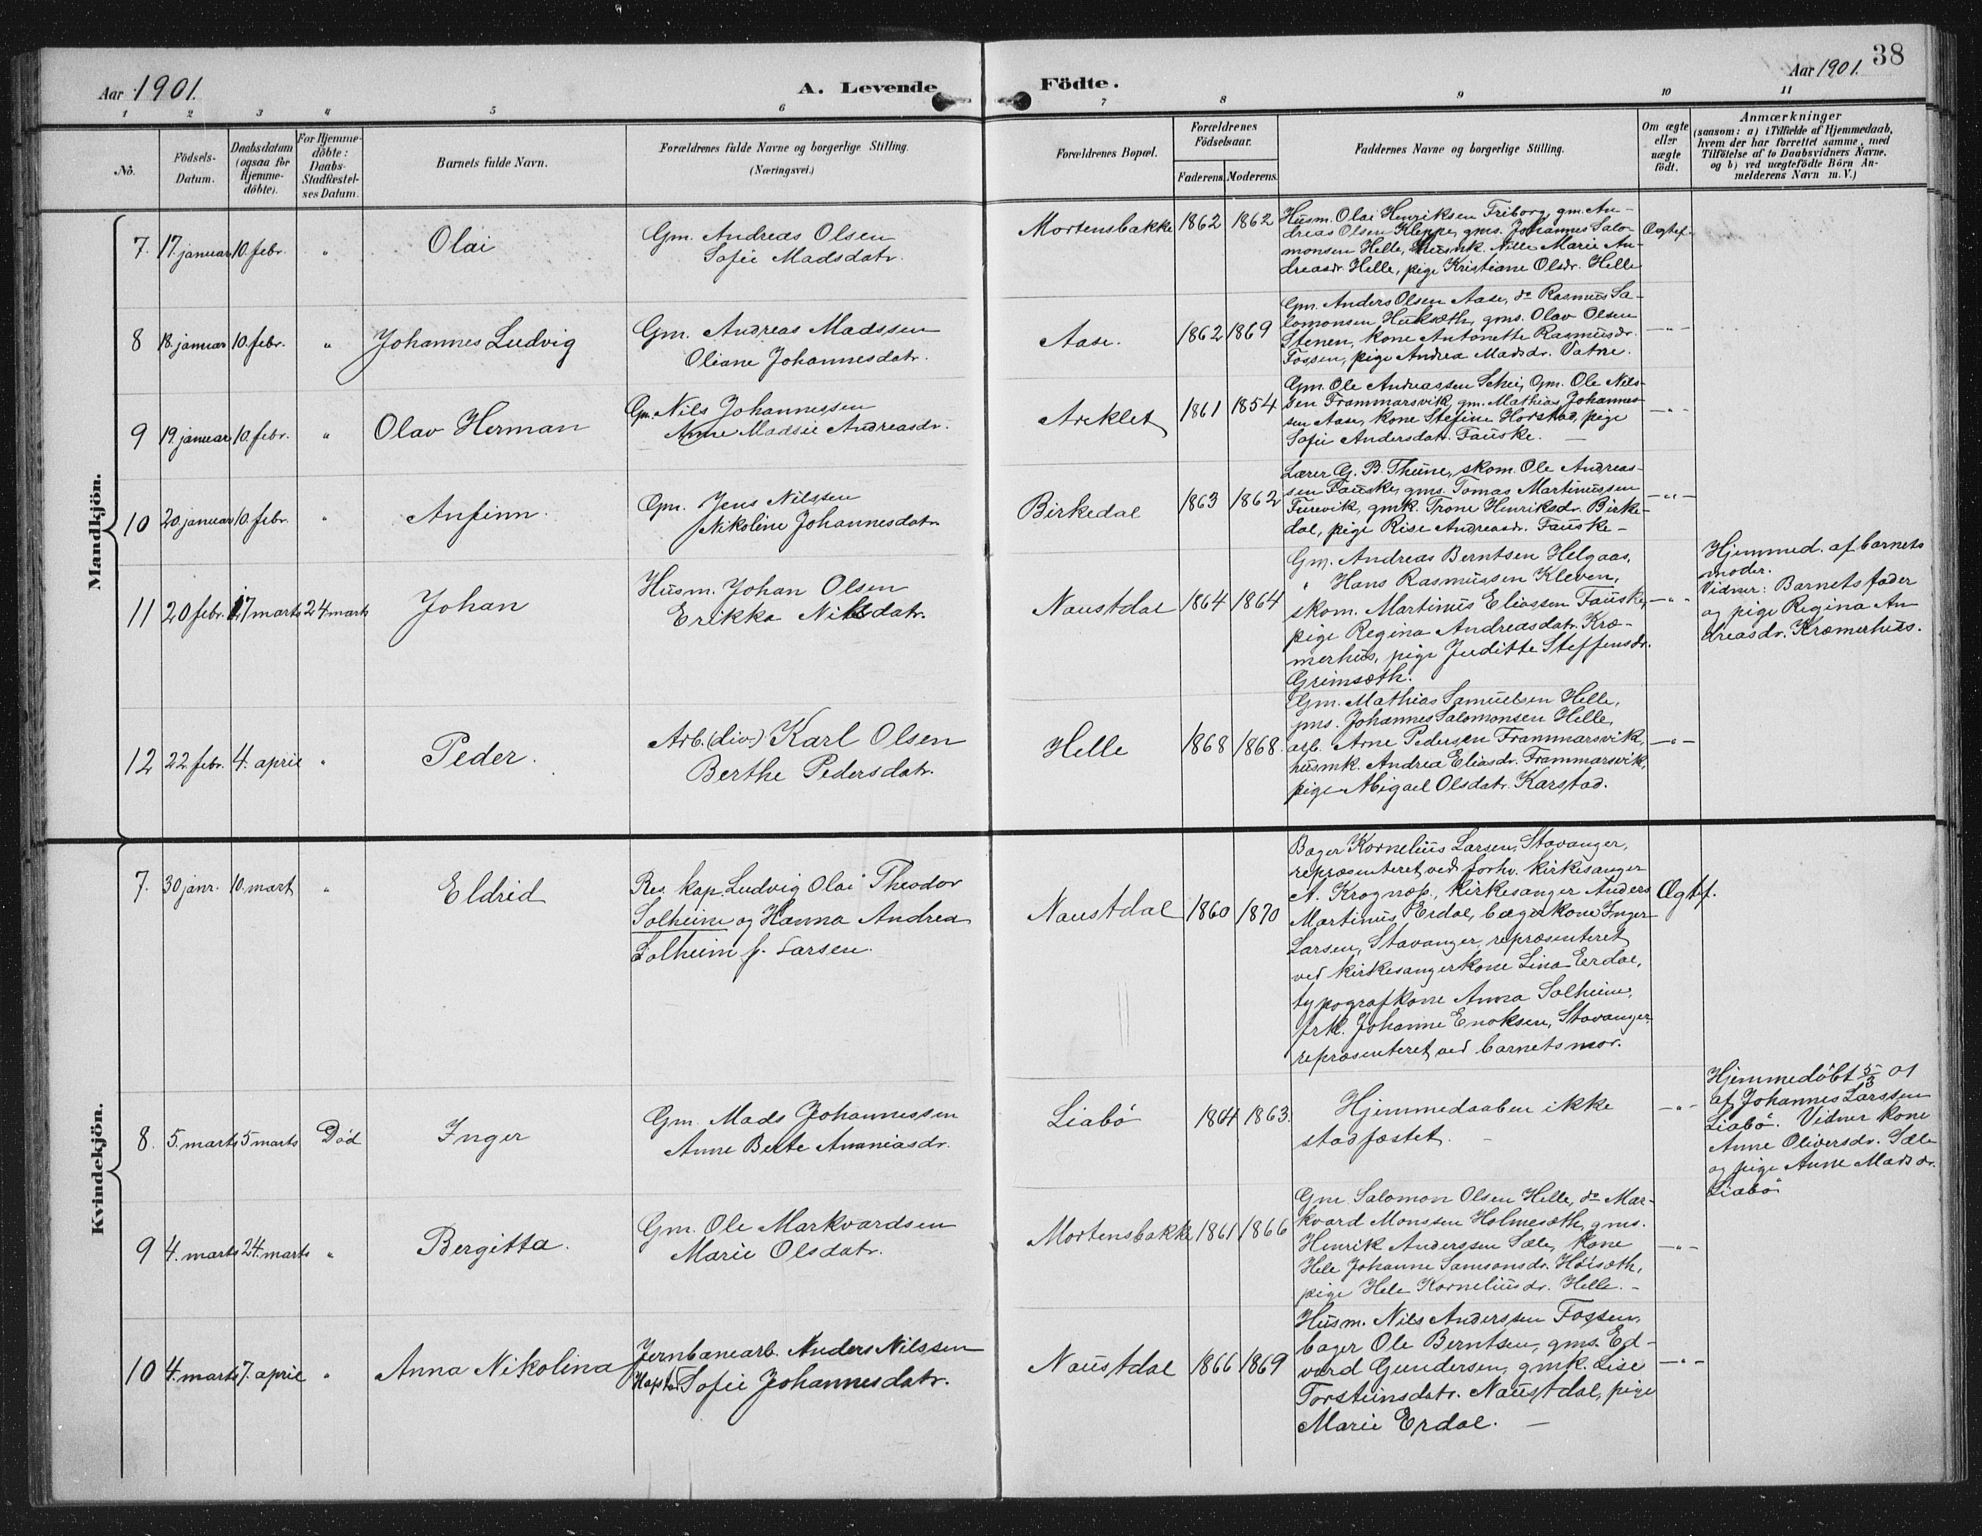 38
Aar 1901.
A. Levende
Födte.
Aar 1901.
1 2 3 4 5 6 7 8 9 10 11
No.
Födsels-
Datum.
Daabsdatum
(ogsaa for
Hjemme-
döbte).
For Hjemme-
döbte:
Daabs-
Stadfæstel-
ses Datum.
Barnets fulde Navn.
Forældrenes fulde Navne og borgerlige Stilling.
(Næringsvei.)
Forældrenes Bopæl.
Forældrenes
Födselsaar.
Faderens.
Moderens.
Faddernes Navne og borgerlige Stilling.
Om ægte
eller
uægte
födt.
Anmærkninger
(saasom: a) i Tilfælde af Hjemmedaab,
hvem der har forrettet samme, med
Tilföielse af to Daabsvidners Navne,
og b) ved uægtefödte Börn An-
melderens Navn m. V.)
Mandkjön.
7. 17. januar 10. febr. " Olai
Gm. Andreas Olsen
Sofie Madsdatr.
Mortensbakke 1862 1862
Husm. Olai Henriksen Friborg, gm. An-
dreas Olsen Kleppe, gms. Johannes Salo-
monsen Helle, husmk. Nille Marie An-
dreasdr. Helle, pige Kristiane Olsdr. Helle
Ægtef.
8 18. januar 10. febr. " Johannes Ludvig
Gm. Andreas Madssen
Oliane Johannesdatr.
Aase. 1862 1869
Gm. Anders Olsen Aase, do Rasmus Sa-
lomonsen Huksæth, gms. Olav Olsen
Stenen, kone Antonette Rasmusdr.
Fossen, pige Andrea Madsdr. Vatne.
—"—
9 19. januar 10. febr. " Olav Herman
Gm. Nils Johannessen
Anne Madsie Andreasdr.
Areklet 1861 1854
Gm. Ole Andreassen Schei, Gm. Ole Nils-
sen Frammarsvik, gm. Mathias Johannes-
sen Aase, kone Stefine Horstad, pige
Sofie Andersdatr. Fauske. —
—"—
10 20. januar 10. febr. " Anfinn.
Gm. Jens Nilssen
Nikoline Johannesdatr.
Birkedal 1863 1862
Lærer G. B. Thune, skom. Ole Andreas-
sen Fauske, gms. Tomas Martinussen
Furevik, gmk. Trone Henriksdr. Birke-
dal, pige Rise Andreasdr. Fauske —
—"—
11 20 febr. 17 marts 24 marts Johan
Husm. Johan Olsen
Erikka Nilsdatr.
Naustdal 1864 1864
Gm. Andreas Berntsen Helgaas,
" Hans Rasmussen Kleven,
skom. Martinus Eliassen Fauske,
pige Regina Andreasdatr. Kræ-
merhus, pige Juditte Steffensdr.
Grimsæth.
—"—
Hjemmed. af barnets
moder.
Vidner: Barnets fader
og pige Regina An
dreasdr. Kræmerhus.
12 22 febr. 4. april " Peder.
Arb. (div.) Karl Olsen
Berthe Pedersdatr.
Helle 1868 1868.
Gm. Mathias Samuelsen Helle,
gms. Johannes Salomonsen Helle,
arb. Arne Pedersen Frammarsvik,
husmk. Andrea Eliasdr. Frammarsvik,
pige Abigael Olsdatr. Karstad.
—"—
Kvindekjön.
7. 30 janr. 10. mart " Eldrid
Res. kap. Ludvig Olai Theodor
Solheim og Hanna Andrea
Solheim f. Larsen.
Naustdal 1860 1870
Bager Kornelius Larsen, Stavanger,
repræsenteret ved forhv. kirkesanger
A. Krognæs, kirkesanger Anders
Martinus Erdal, bagerkone Inger
Larsen, Stavanger, repræsenteret
ved kirkesangerkone Lina Erdal,
typografkone Anna Solheim,
frk. Johanne Enoksen, Stavanger,
repræsenteret ved barnets mor.
Ægtf.
8. 5. marts 5 marts Död Inger
Gm. Mads Johannessen
Anne Berte Ananiasdr.
Liabö 1864 1863.
Hjemmedaaben ikke
stadfæstet. —
—"—
Hjemmedöbt 5/3 01
af Johannes Larssen
Liabö. Vidner kone
Anne Oliversdr. Sæle
og pige Anne Madsdr.
Liabö
9 4. marts 24. marts " Bergitta.
Gm. Ole Markvardsen
Marie Olsdatr.
Mortensbakke 1861 1866
Gm Salomon Olsen Helle, do Mar-
kvard Monssen Holmesæth, gms.
Henrik Anderssen Sæle, kone
Hele Johanne Samsonsdr. Höisæth,
pige Hele Korneliusdr. Helle. —
—"—
10 4. marts 7. april " Anna Nikolina
Jernbanearb. Anders Nilssen
Sofie Johannesdatr.
Naustdal 1866 1869
Husm. Nils Anderssen Fossen,
bager Ole Berntsen, gms. Ed-
vard Gundersen, gmk. Lise
Torsteinsdatr. Naustdal, pige
Marie Erdal. —
—"—